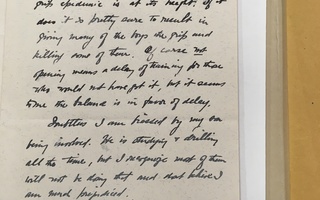 grip epidemic is at its height. If it
does it is pretty sure to result in
giving many of the boys the grip and
killing some of them. Of course not
opening means a delay of training for those
who would not have got it, but it seems
to me the balance is in favor of delay.
Doubtless I am biased by my son
being involved. He is studying & drilling
all the time, but I recognize most of them
will not be doing that and don't believe I
am much prejudiced.